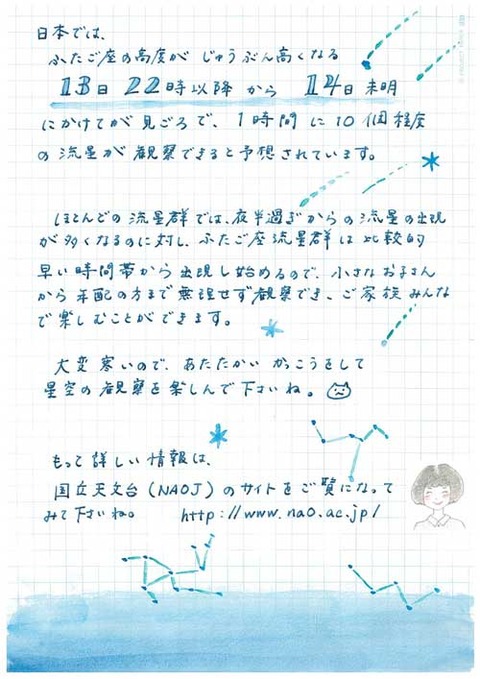 日本では、
ふたご座の高度が じゅうぶん高くなる
13日 22時以降 から 14日 未明
にかけてが 見ごろ で、1時間 に 10個程度
の 流星が 観察できると予想 されています。
ほとんどの 流星群では、夜半過ぎからの 流星の出現
が多くなるのに対し、ふたご座流星群 は 比較的
早い時間帯から 出現し始めるので、小さなお子さん
から 年配の方まで 無理せず観察でき、ご家族 みんな
で楽しむことが できます。
大変 寒いので、あたたかい かっこうをして
星空の 観察を楽しんで 下さいね。
もっと詳しい 情報は、
国立天文台 (NAOJ) の サイトを ご覧 になって
みて下さいね。 http://www.nao.ac.jp/